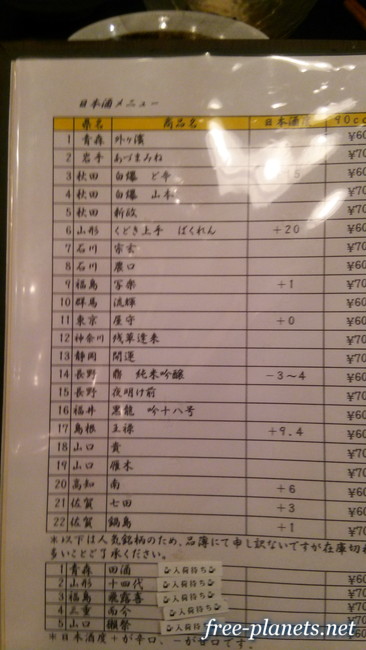 日本酒メニュー
県名 商品名 日本酒度 90cc
1 青森 外ヶ濱 ¥60
2 岩手 あづまみね ¥70
3 秋田 白瀑 ど辛 ¥60
4 秋田 白瀑 山本 ¥70
5 秋田 新政 ¥70
6 山形 くどき上手 ばくれん +20 ¥60
7 石川 宗玄 ¥70
8 石川 農口 ¥60
9 福島 写楽 +1 ¥60
10 群馬 流輝 ¥60
11 東京 屋守 +0 ¥70
12 神奈川 残草蓬莱 ¥70
13 静岡 開運 ¥70
14 長野 勢 純米吟醸 -3~4 ¥60
15 長野 夜明け前 ¥70
16 福井 黒龍 吟十八号 ¥60
17 島根 王祿 +9.4 ¥70
18 山口 貴 ¥70
19 山口 雁木 ¥70
20 高知 南 +6 ¥60
21 佐賀 七田 +3 ¥70
22 佐賀 鍋島 +1 ¥70
*以下は人気銘柄のため、品薄にて申し訳ないですが在庫切れ
多いことご了承ください。
1 青森 田酒 入荷待ち
2 山形 十四代 入荷待ち ¥60
3 福島 飛露喜 入荷待ち ¥70
4 三重 而今 入荷待ち
5 山口 獺祭 入荷待ち
*日本酒度+が辛口、-が甘口です。
free-planets.net